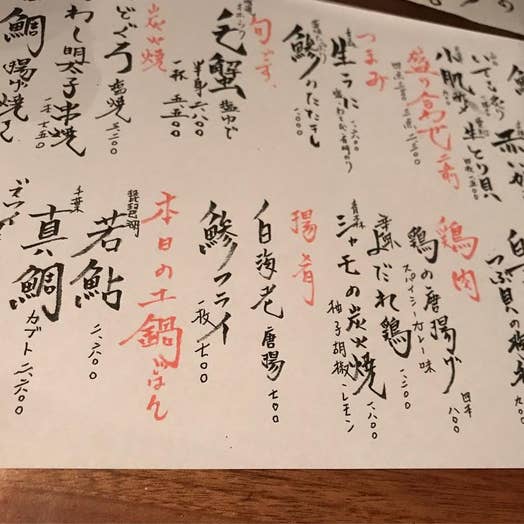 赤いか
いてる
生とり貝
小肌
盛り合わせ 二前
つまみ
生うに 一、六〇〇
鯵のたたき 一、〇〇〇
旬です。
毛蟹 塩ゆで
半身 二八〇〇
一杯 五五〇〇
炭火焼
どぐろ 塩焼 三二〇〇
わし明太子串焼 一本 七五〇
鯛 揚げ焼き
つぶ貝の
九〇〇
鶏肉
鶏の唐揚げ 四ヶ 八〇〇
スパイシーカレー味
よだれ鶏 一、二〇〇
青森
シャモの炭火焼 一、八〇〇
柚子胡椒・レモン
揚肴
白海老 唐揚 七〇〇
鯵フライ 一枚 七〇〇
本日の土鍋ごはん
琵琶湖
若鮎 二、六〇〇
千葉
真鯛 カブト 二、六〇〇